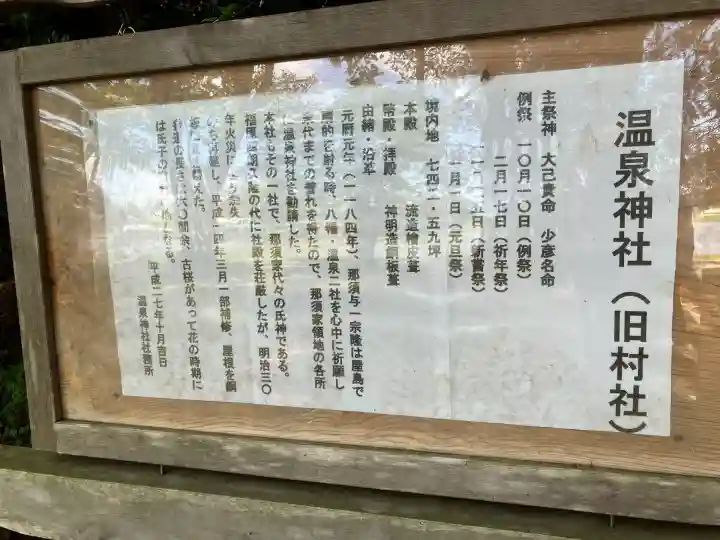 温泉神社（旧村社）
主祭神 大己貴命 少彦名命
例祭 一〇月一〇日（例祭）
二月一七日（祈年祭）
一一月二五日（新嘗祭）
一月一日（元旦祭）
境内地 七四二・五九坪
本殿 流造檜皮葺
幣殿・拝殿 神明造銅板葺
由緒・沿革
元暦元年（一一八四年）、那須与一宗隆は屋島で
的を射る時、八幡・温泉二社を心中に祈願し
末代までの誉れを得たので、那須家領地の各所
温泉神社を勧請した。
本社もその一社で、那須家代々の氏神である。
の代に社殿を荘厳したが、明治三〇
年火災に
し、平成一四年三月一部補修、屋根を銅
えた。
〇間余、古桜があって花の時期に
は氏子の
平成二七年十月吉日
温泉神社社務所